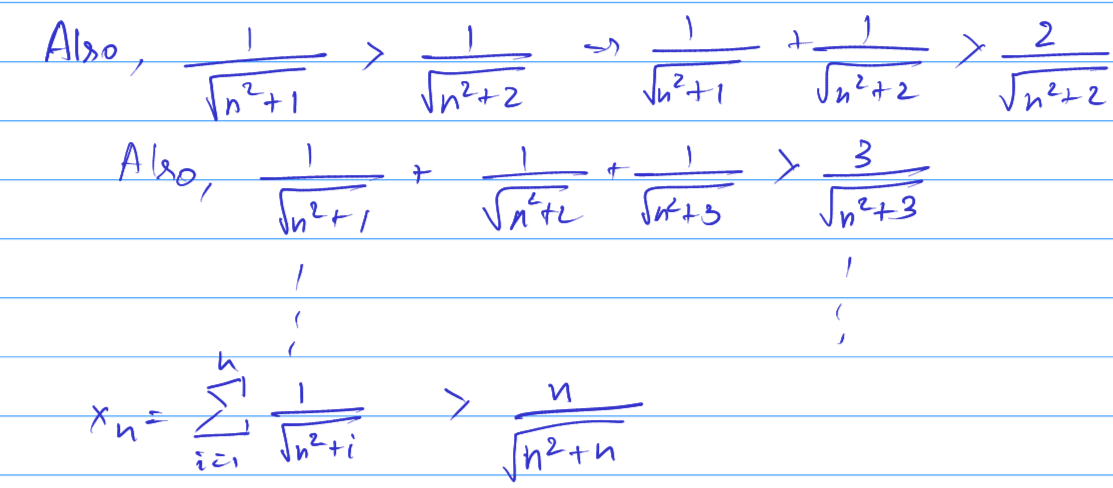 Also, 1/√(n²+1) > 1/√(n²+2) → 1/√(n²+1) + 1/√(n²+2) > 2/√(n²+2)
Also, 1/√(n²+1) + 1/√(n²+2) + 1/√(n²+3) > 3/√(n²+3)
xₙ = ∑_{i=1}^{n} 1/√(n²+i) > n/√(n²+n)